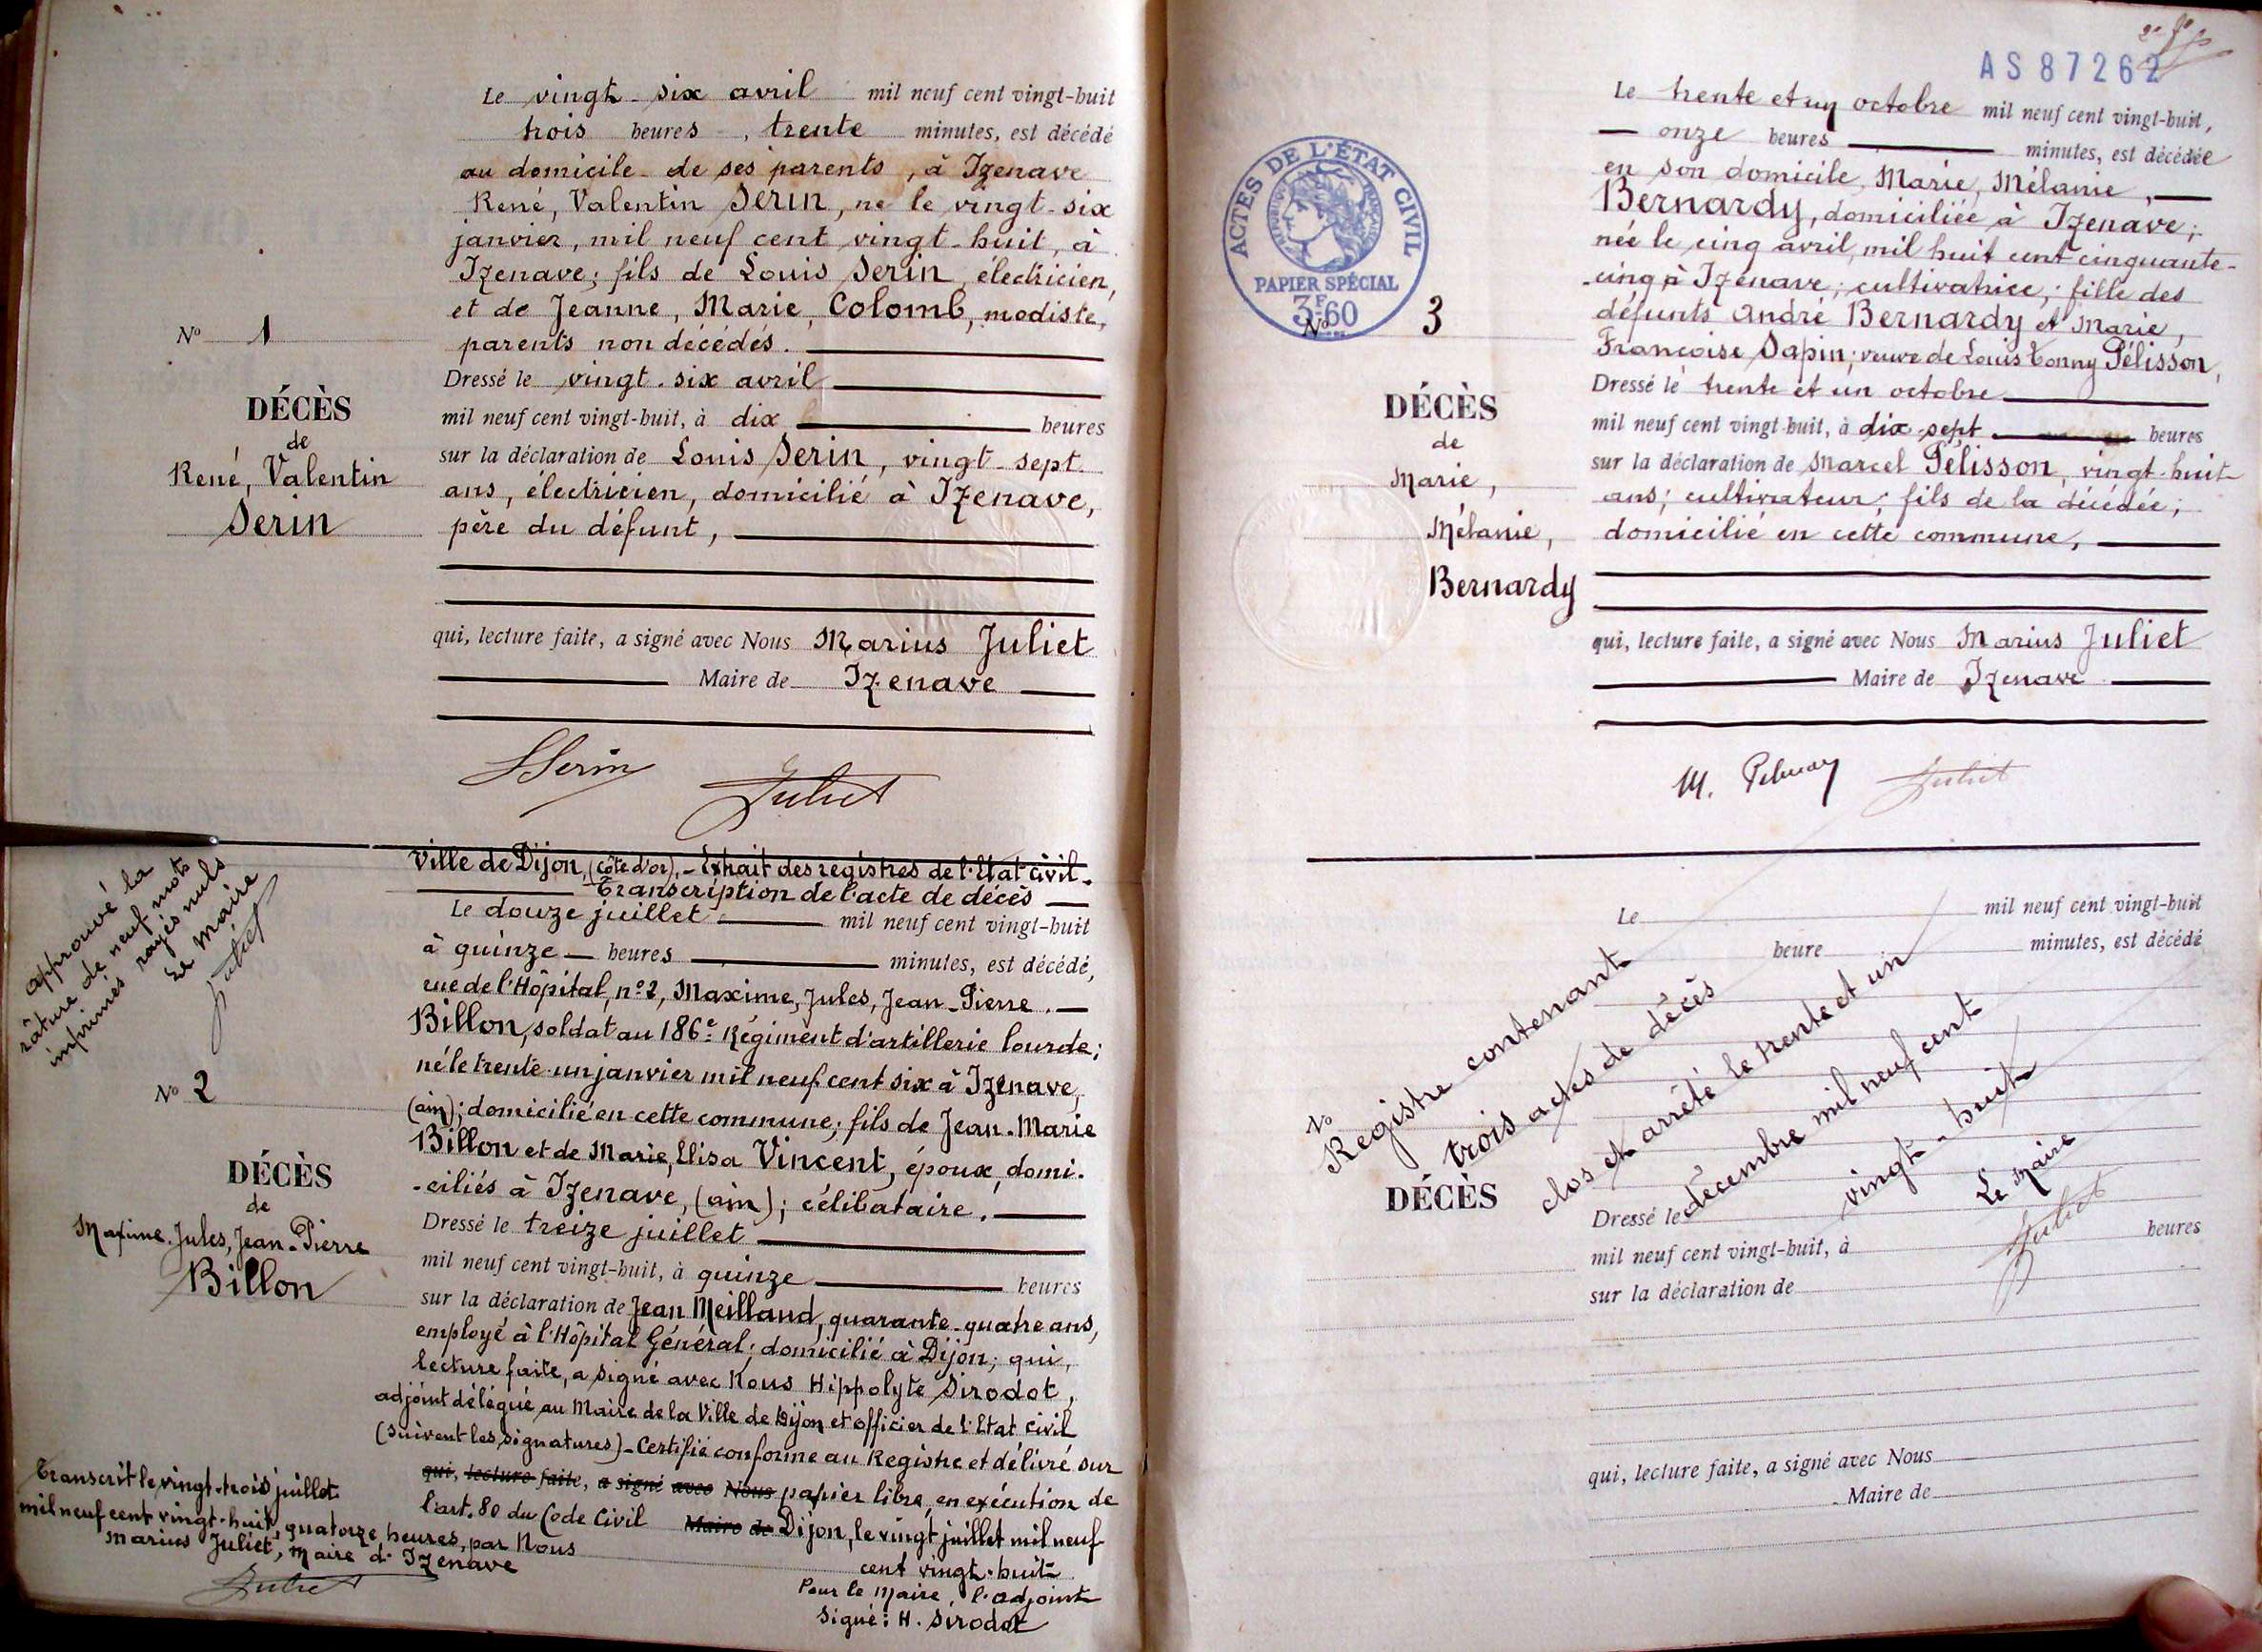 Le vingt-six avril mil neuf cent vingt-huit
trois heures, trente minutes, est décédé
au domicile de ses parents, à Izenave
René, Valentin Serin, né le vingt-six
janvier, mil neuf cent vingt-huit, à
Izenave; fils de Louis Serin, électricien,
et de Jeanne, Marie, Colomb, modiste,
parents non décédés.
Dressé le vingt-six avril
mil neuf cent vingt-huit, à dix heures
sur la déclaration de Louis Serin, vingt-sept
ans, électricien, domicilié à Izenave,
père du défunt,
qui, lecture faite, a signé avec Nous Marius Juliet
Maire de Izenave
LSerin Juliet
N° 1
DÉCÈS
de
René, Valentin
Serin
Ville de Dijon, (Côte d'or).- Extrait des registres de l'Etat civil.
Transcription de l'acte de décès
Le douze juillet mil neuf cent vingt-huit
à quinze heures minutes, est décédé,
rue de l'Hôpital, n°2, Maxime, Jules, Jean-Pierre.
Billon, soldat au 186e Régiment d'artillerie lourde;
né le trente-un janvier mil neuf cent six à Izenave,
(ain); domicilié en cette commune; fils de Jean-Marie
Billon et de Marie, Elisa Vincent, époux, domi-
-ciliés à Izenave, (ain); célibataire.
Dressé le treize juillet
mil neuf cent vingt-huit, à quinze heures
sur la déclaration de Jean Meilland, quarante-quatre ans,
employé à l'Hôpital Général; domicilié à Dijon; qui,
lecture faite, a signé avec Nous Hippolyte Sirodot,
adjoint délégué au Maire de la Ville de Dijon et officier de l'Etat civil
(Suivent les signatures)-Certifié conforme au Registre et délivré sur
qui, lecture faite, a signé avec Nous papier libre, en exécution de
l'art. 80 du Code Civil Maire de Dijon, le vingt juillet mil neuf
cent vingt-huit
Pour le Maire, l'adjoint
Signé: H. Sirodot
approuvé la
râture de neuf mots
imprimés rayés nuls
Le Maire
Juliet
N° 2
DÉCÈS
de
Maxime, Jules, Jean-Pierre
Billon
Transcrit le vingt-trois juillet
mil neuf cent vingt-huit, quatorze heures, par Nous
Marius Juliet, Maire d'Izenave
Juliet
AS 87262
ACTES DE L'ÉTAT CIVIL
PAPIER SPÉCIAL
3F60
Le trente et un octobre mil neuf cent vingt-huit,
onze heures minutes, est décédée
en son domicile, Marie, Mélanie,
Bernardy, domiciliée à Izenave;
née le cinq avril, mil huit cent cinquante-
-cinq à Izenave; cultivatrice; fille des
défunts André Bernardy et Marie,
Françoise Sapin; veuve de Louis Tonny Pélisson,
Dressé le trente et un octobre
mil neuf cent vingt-huit, à dix-sept heures
sur la déclaration de Marcel Pélisson, vingt-huit
ans; cultivateur; fils de la décédée;
domicilié en cette commune,
qui, lecture faite, a signé avec Nous Marius Juliet
Maire de Izenave
M. Juliet
N° 3
DÉCÈS
de
Marie,
Mélanie,
Bernardy
Le mil neuf cent vingt-huit
heure minutes, est décédé
N°
DÉCÈS
Registre contenant
trois actes de décès
clos et arrêté le trente et un
décembre mil neuf cent
vingt-huit
Le Maire
Juliet
Dressé le
mil neuf cent vingt-huit, à heures
sur la déclaration de
qui, lecture faite, a signé avec Nous
Maire de